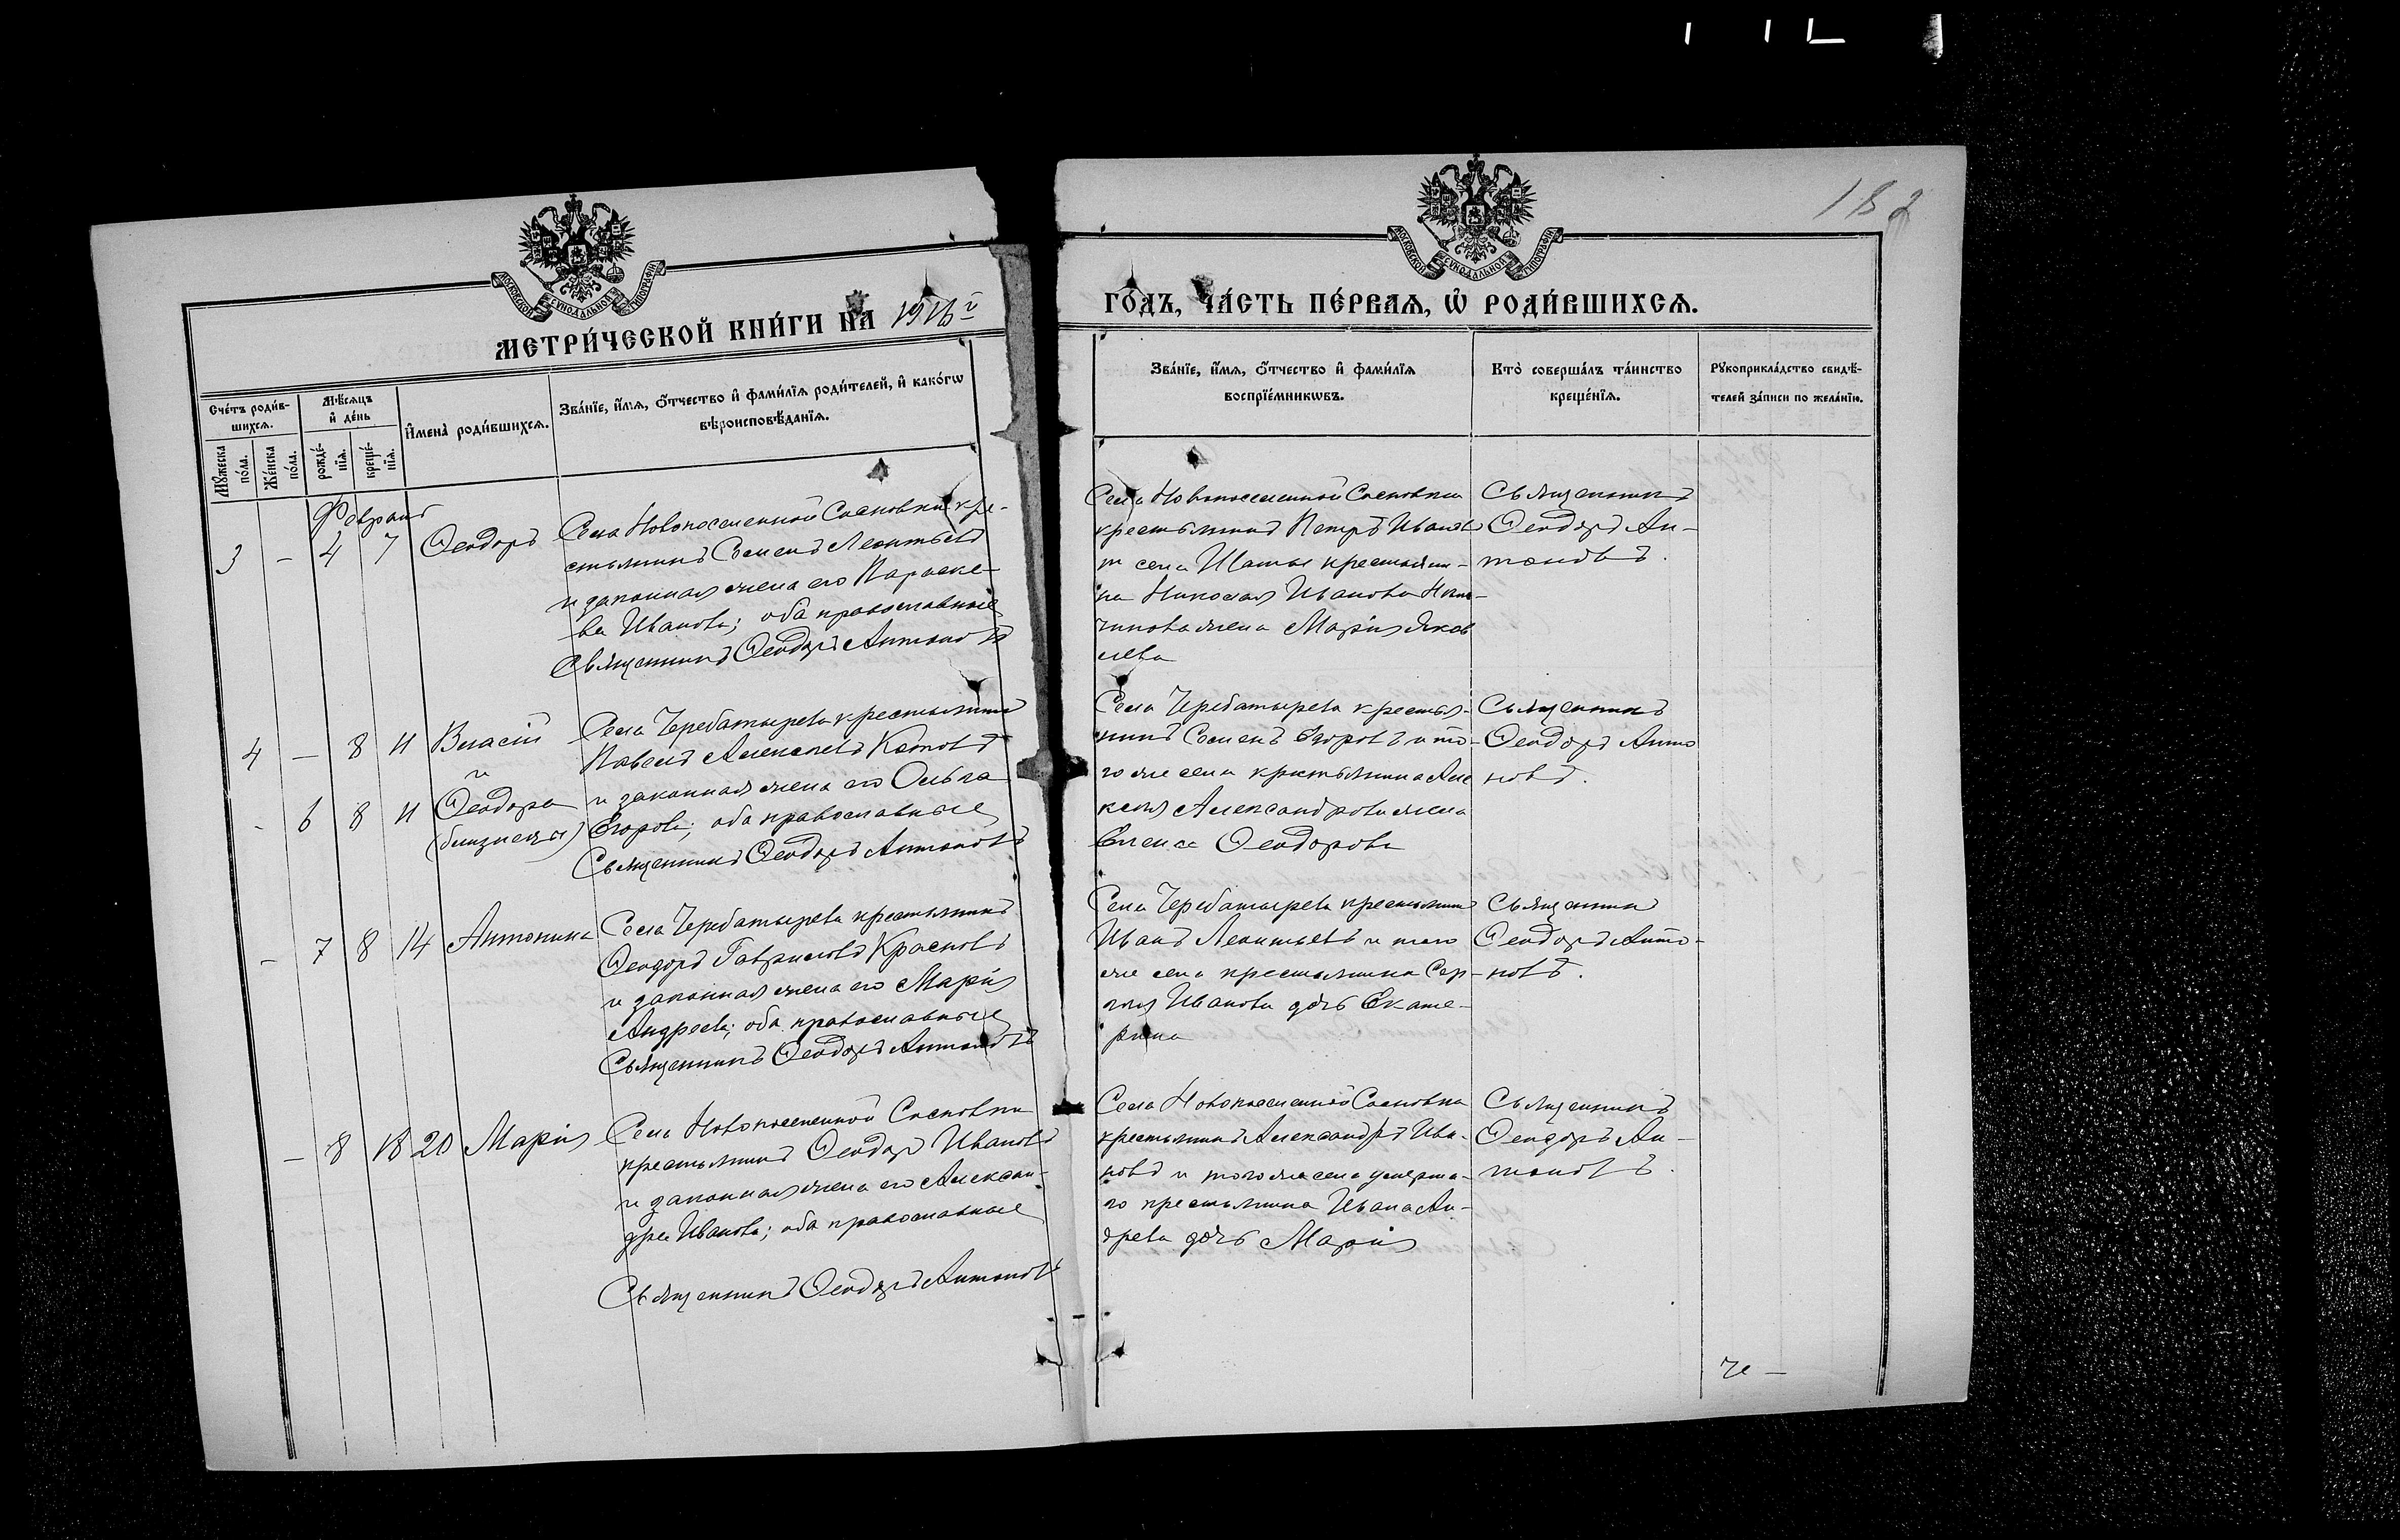 182
МОСКОВСКОЙ СѴНОДАЛЬНОЙ ТИПОГРАФІИ
МОСКОВСКОЙ СѴНОДАЛЬНОЙ ТИПОГРАФІИ
МЕТРИ́ЧЕСКОЙ КНИ́ГИ НА 1916й
ГО́ДЪ, ЧА́СТЬ ПЕ́РВАѦ, Ѡ҆ РОДИ́ВШИХСѦ.
Сче́тъ роди́в-
шихсѧ.
Мꙋ́жеска
по́ла.
Же́нска
по́ла.
Мѣ́сѧцъ
и҆ де́нь
рожде́-
нїѧ.
креще́-
нїѧ.
И҆мена̀ роди́вшихсѧ.
Зва́нїе, и҆́мѧ, ѻ҆́тчество и҆ фами́лїѧ роди́телей, и҆ како́гѡ
вѣроисповѣ́данїѧ.
Зва́нїе, и҆́мѧ, ѻ҆́тчество и҆ фами́лїѧ
воспрїе́мникѡвъ.
Кто̀ соверша́лъ та́инство
креще́нїѧ.
Рꙋкоприкла́дство свидѣ́-
телей за́писи по жела́нїю.
Февраль
3 - 4 7 Ѳеодоръ
Села Новопоселенной Сосновки кре-
стьянинъ Семенъ Леонтьевъ
и законная жена его Параске-
ва Иванова; оба православные
Священникъ Ѳеодоръ Антоновъ
Села Новопоселенной Сосновки
крестьянинъ Петръ Ивановъ
и села крестьяни-
на Николая Иванова
жена Марія Яков
лева
Священникъ
Ѳеодоръ Ан-
тоновъ.
4 - 8 11 Власій
и
- 6 8 11 Ѳеодора
(близнецы)
Села Чербатырева крестьянинъ
Павелъ Алексеевъ
и законная жена его Ольга
Егорова; оба православные
Священникъ Ѳеодоръ Антоновъ
Села Чербатырева крестья-
нинъ Семенъ Егоровъ и то-
го же села крестьянина Але
ксея Александрова жена
Елена Ѳеодорова
Священникъ
Ѳеодоръ Анто
новъ.
- 7 8 14 Антонина
Села Чербатырева крестьянинъ
Ѳеодоръ Гавриловъ Красновъ
и законная жена его Марія
Андреева; оба православные
Священникъ Ѳеодоръ Антоновъ
Села Чербатырева крестьянинъ
Иванъ Леонтьевъ и того
же села крестьянина Сер-
гея Иванова дочь Екате-
рина
Священникъ
Ѳеодоръ Анто-
новъ.
- 8 18 20 Марія
Села Новопоселенной Сосновки
крестьянинъ Ѳеодоръ Ивановъ
и законная жена его Алексан-
дра Иванова; оба православные
Священникъ Ѳеодоръ Антоновъ
Села Новопоселенной Сосновки
крестьянинъ Александръ Ива-
новъ и того же села умерша-
го крестьянина Ивана Ан-
дреева дочь Марія
Священникъ
Ѳеодоръ Ан-
тоновъ.